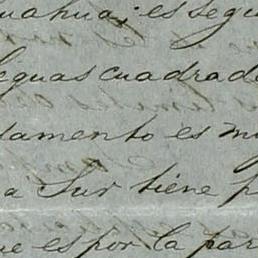 uahua; es segu
leguas cuadrad
damento es m
a Sur tiene p
ue es por la par